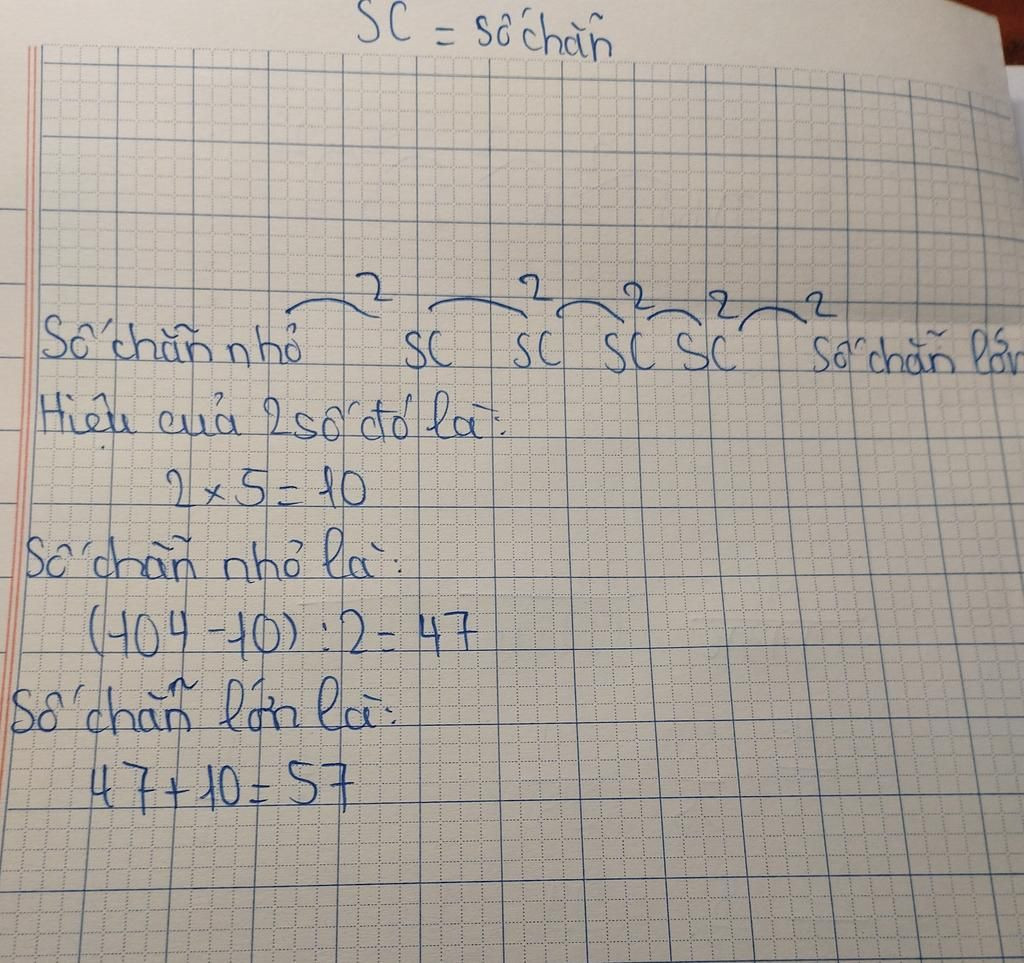 SC = số chẵn
2 2 2 2 2
Số chẵn nhỏ SC SC SC SC Số chẵn lớn
Hiệu của 2 số đó là:
2 × 5 = 10
Số chẵn nhỏ là:
(104 - 10) : 2 = 47
Số chẵn lớn là:
47 + 10 = 57